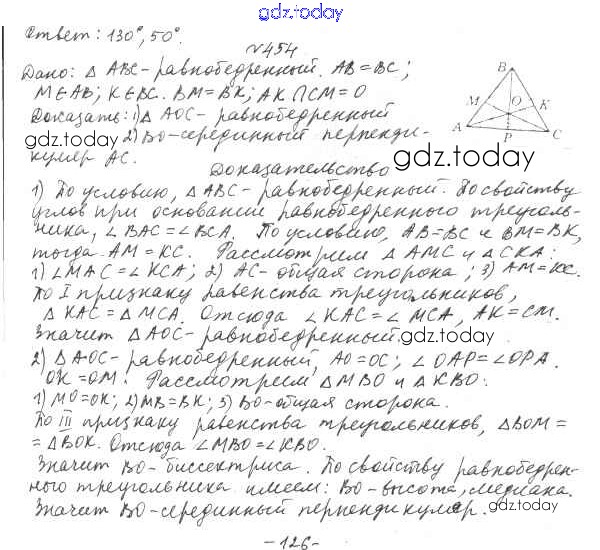 gdz.today
Ответ: 130°, 50°.
N454
Дано: △ABC-равнобедренный. AB=BC;
M∈AB; K∈BC. BM=BK; AK∩CM=O
Доказать: 1) △AOC-равнобедренный
gdz.today 2) BO-серединный перпенди-
куляр AC.
B
M
O
K
A
P
C
gdz.today
Доказательство
1) По условию, △ABC-равнобедренный. По свойству
углов при основании равнобедренного треуголь-
ника, ∠BAC=∠BCA. По условию, AB=BC и BM=BK,
тогда AM=KC. Рассмотрим △AMC и △CKA:
1) ∠MAC=∠KCA; 2) AC-общая сторона; 3) AM=KC.
По I признаку равенства треугольников,
△KAC=△MCA. Отсюда ∠KAC=∠MCA, AK=CM.
Значит △AOC-равнобедренный.
gdz.today
2) △AOC-равнобедренный, AO=OC; ∠OAP=∠OPA.
OK=OM. Рассмотрим △MBO и △KBO:
1) MO=OK; 2) MB=BK; 3) BO-общая сторона.
По III признаку равенства треугольников, △BOM=
=△BOK. Отсюда ∠MBO=∠KBO.
Значит BO-биссектриса. По свойству равнобедрен-
ного треугольника имеем: BO-высота, медиана.
Значит BO-серединный перпендикуляр.
gdz.today
-126-